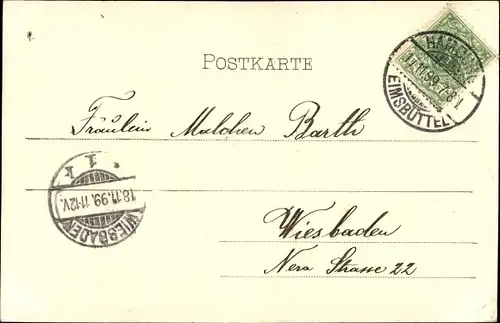 POSTKARTE
HAMBURG
17.11.99.7-8 N.
EIMSBÜTTEL
Fräulein Malchen Barth
* 1 k
18.11.99.11-12V.
WIESBADEN
Wiesbaden
Nero Strasse 22